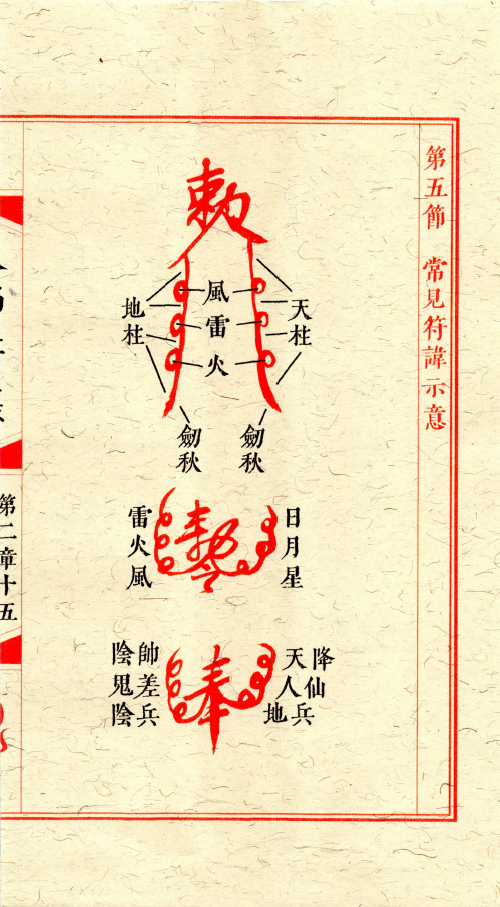 第五節 常見符諱示意
勅
風
雷
火
天柱
地柱
劒秋
劒秋
勅令
日月星
雷火風
奉
降仙兵
天人地
帥差兵
陰鬼陰
第二章十五